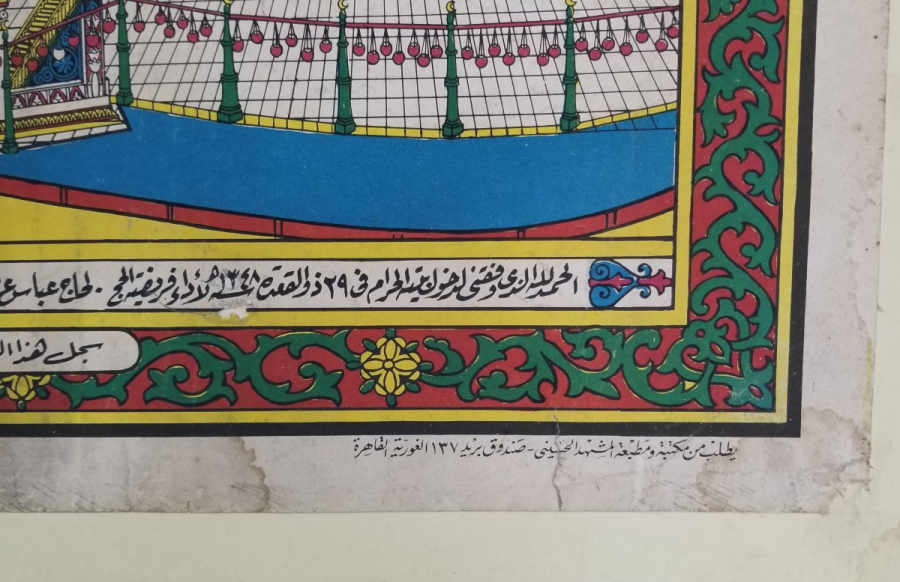 الحمد لله الذي وفقني لدخول بيته الحرام في ٢٩ ذو القعدة ١٣٤٨ﻫ لأداء فريضة الحج . لحاج عباس
يجل هذا
يطلب من مكتبة ومطبعة المشهد الحسيني - صندوق بريد ١٣٧ الغورية القاهرة